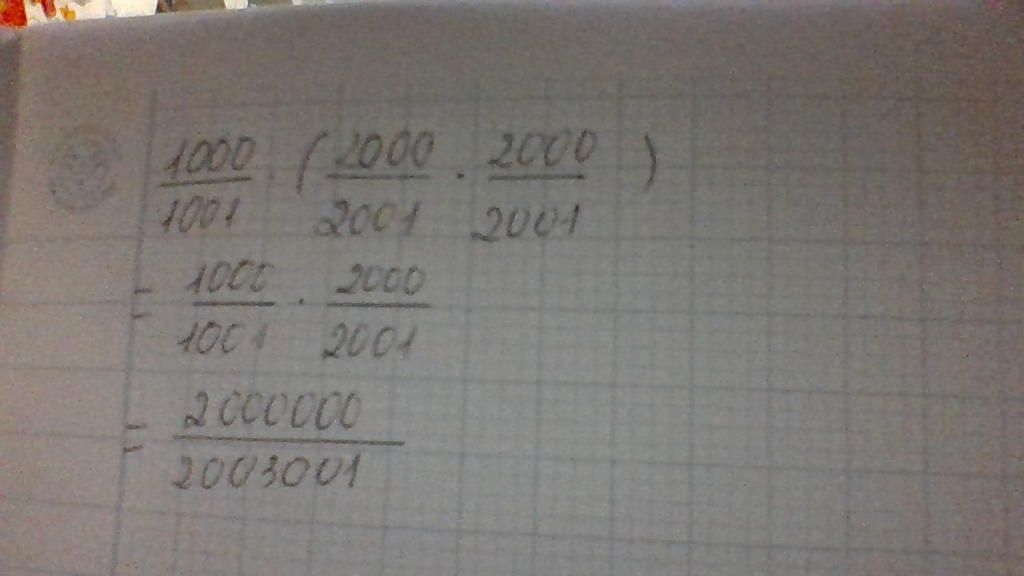 1000/1001 · (2000/2001 · 2000/2001)
= 1000/1001 · 2000/2001
= 2000000/2003001